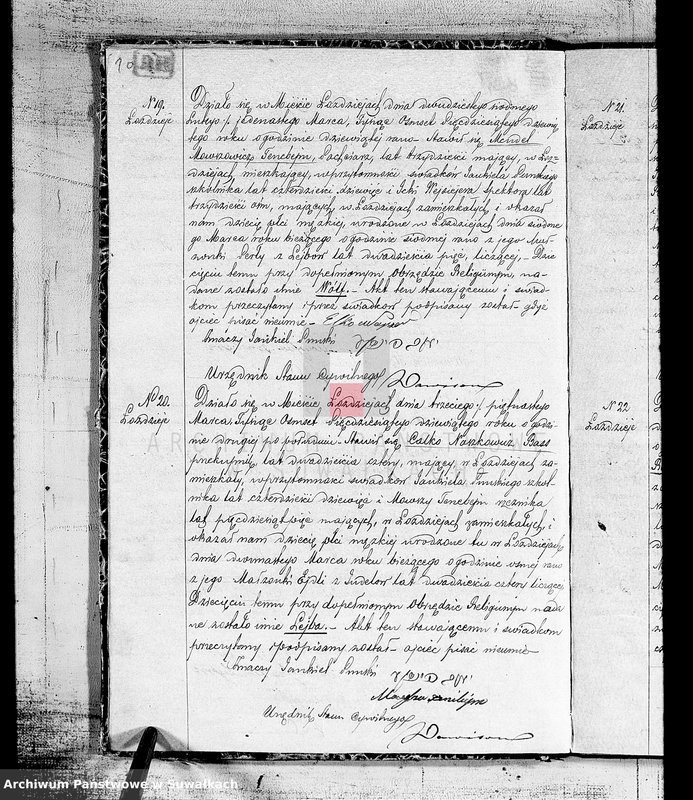 N 19.
Łoździeje
Działo się w Mieście Łoździejach dnia dwudziestego siódmego
Lutego /: jedenastego Marca, Tysiąc Ośmset Pięćdziesiątego dziewią
tego roku o godzinie dziewiątej rano Stawił się Mendel
Mowszowicz Tenebejm, Pachciarz, lat trzydzieści mający, w Łoz-
dziejach mieszkający, w przytomności świadków Jankiela Puńskiego
szkolnika lat czterdzieści dziewięć i Icki Wejsiejera Spektora lat
trzydzieści ośm, mających, w Łoździejach zamieszkałych, i okazał
nam dziecię płci męzkiej, urodzone w Łoździejach dnia siódme
go Marca roku bieżącego o godzinie siódmej rano z jego Mał-
żonki Perły z Lejbów lat dwadzieścia pięć, liczącej, Dzie
cięciu temu przy dopełnionym Obrzędzie Religijnym, na-
dane zostało imie Wolf. Akt ten stawającemu i świad-
kom przeczytany i przez świadków podpisany został gdyż
ojciec pisać nieumie
Tłmaczy Jankiel Puński
Urzędnik Stanu Cywilnego
N 20.
Łoździeje
Działo się w Mieście Łoździejach dnia trzeciego /: piętnastego
Marca, Tysiąc Ośmset Pięćdziesiątego dziewiątego roku o godzi
nie drugiej po południu Stawił się Calko Noszkowicz Bass
przekupień, lat dwadzieścia cztery, mający, w Łoździejach za-
mieszkały, w przytomności świadków Jankiela Puńskiego szkol-
nika lat czterdzieści dziewięć i Mowszy Tenebejm rzeźnika
lat pięćdziesiąt mających, w Łoździejach zamieszkałych, i
okazał nam dziecię płci męzkiej urodzone tu w Łoździejach,
dnia dwunastego Marca roku bieżącego o godzinie ósmej rano
z jego Małżonki Ejdli z Judelów lat dwadzieścia cztery liczącej
Dziecięciu temu przy dopełnionym Obrzędzie Religijnym nada
ne zostało imie Lejba. Akt ten stawającemu i świadkom
przeczytany i podpisany został ojciec pisać nieumie
Tłmaczy Jankiel Puński
Urzędnik Stanu Cywilnego
N 21.
Łoździeje
N 22.
Łoździeje
Archiwum Państwowe w Suwałkach